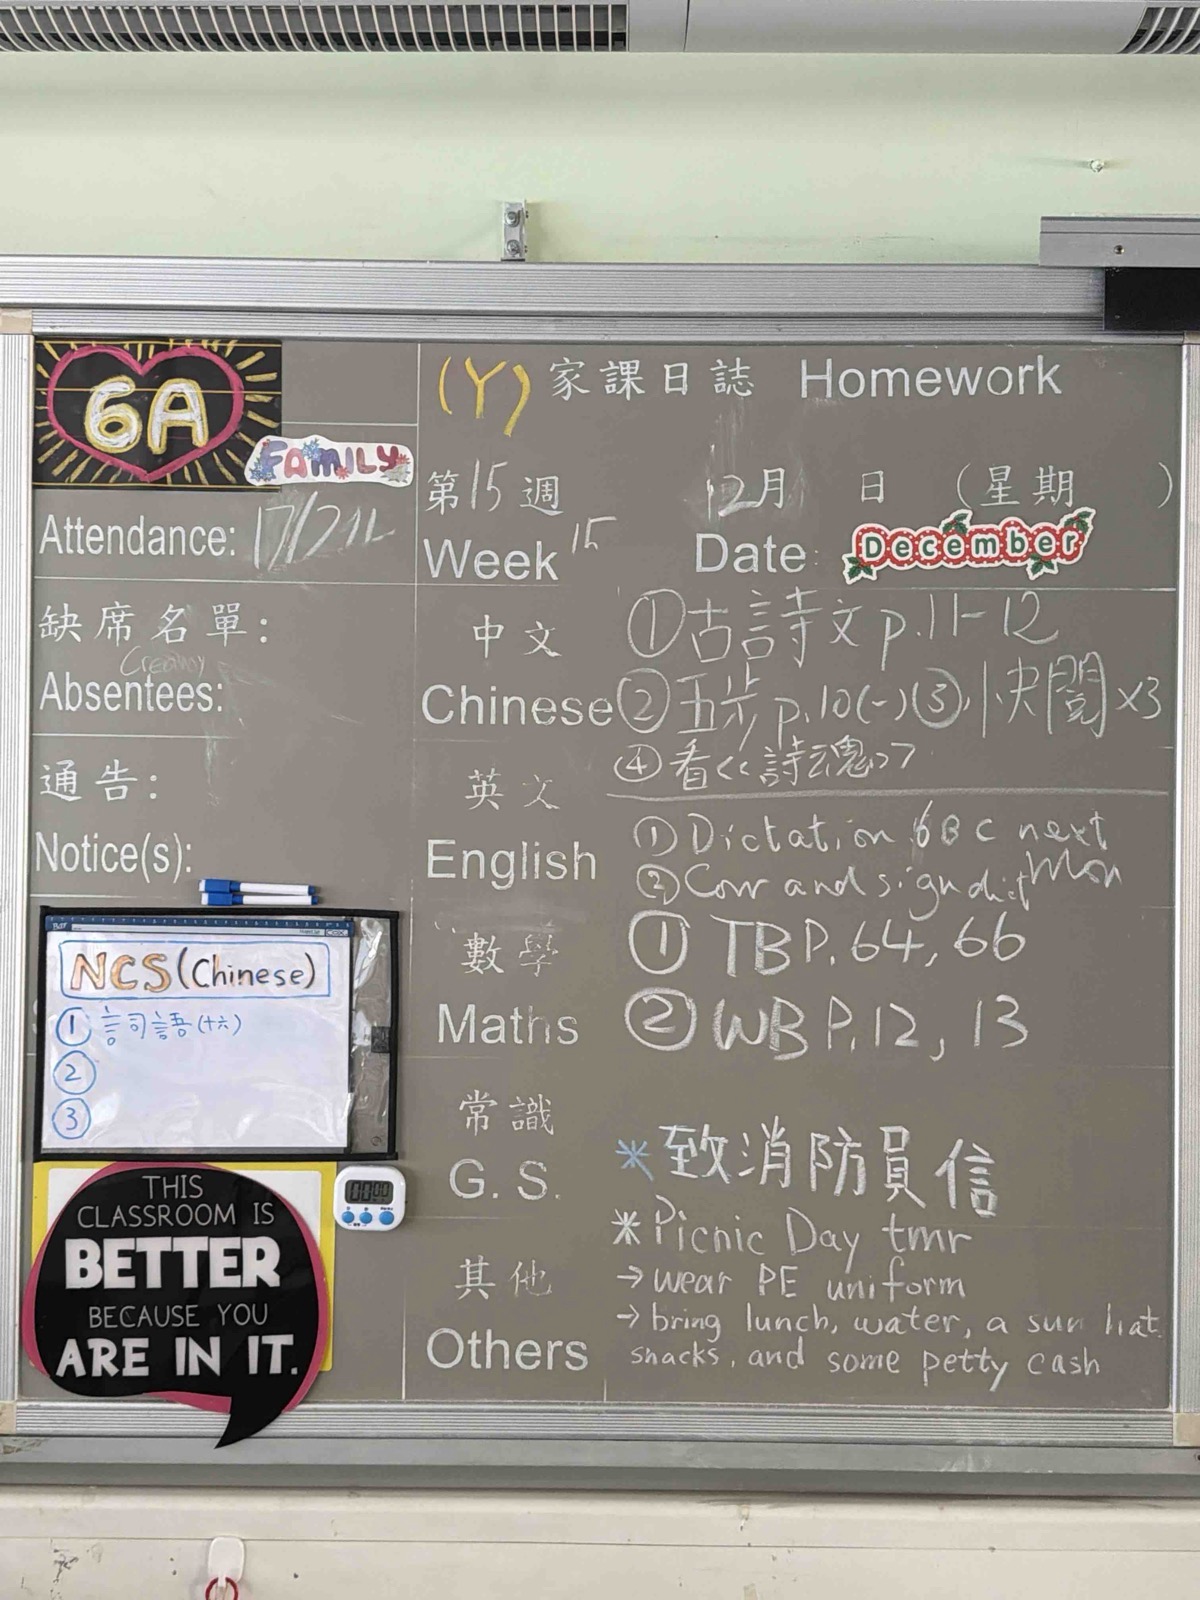 6A
FAMILY
Attendance: 17/21
缺席名單:
Creamy
Absentees:
通告:
Notice(s):
NCS (Chinese)
① 詞語(十六)
②
③
THIS
CLASSROOM IS
BETTER
BECAUSE YOU
ARE IN IT.
00:00
(Y) 家課日誌 Homework
第15週 12月 日 (星期 )
Week 15 Date: December
中文
Chinese
① 古詩文 p.11-12
② 五步 p.10(一) ③ 快閱 x3
④ 看<<詩魂>>
英文
English
① Dictation 6BC next Mon
② Corr and sign dict
數學
Maths
① TB P.64, 66
② WB P.12, 13
常識
G. S.
* 致消防員信
其他
Others
* Picnic Day tmr
→ wear PE uniform
→ bring lunch, water, a sun hat,
snacks, and some petty cash